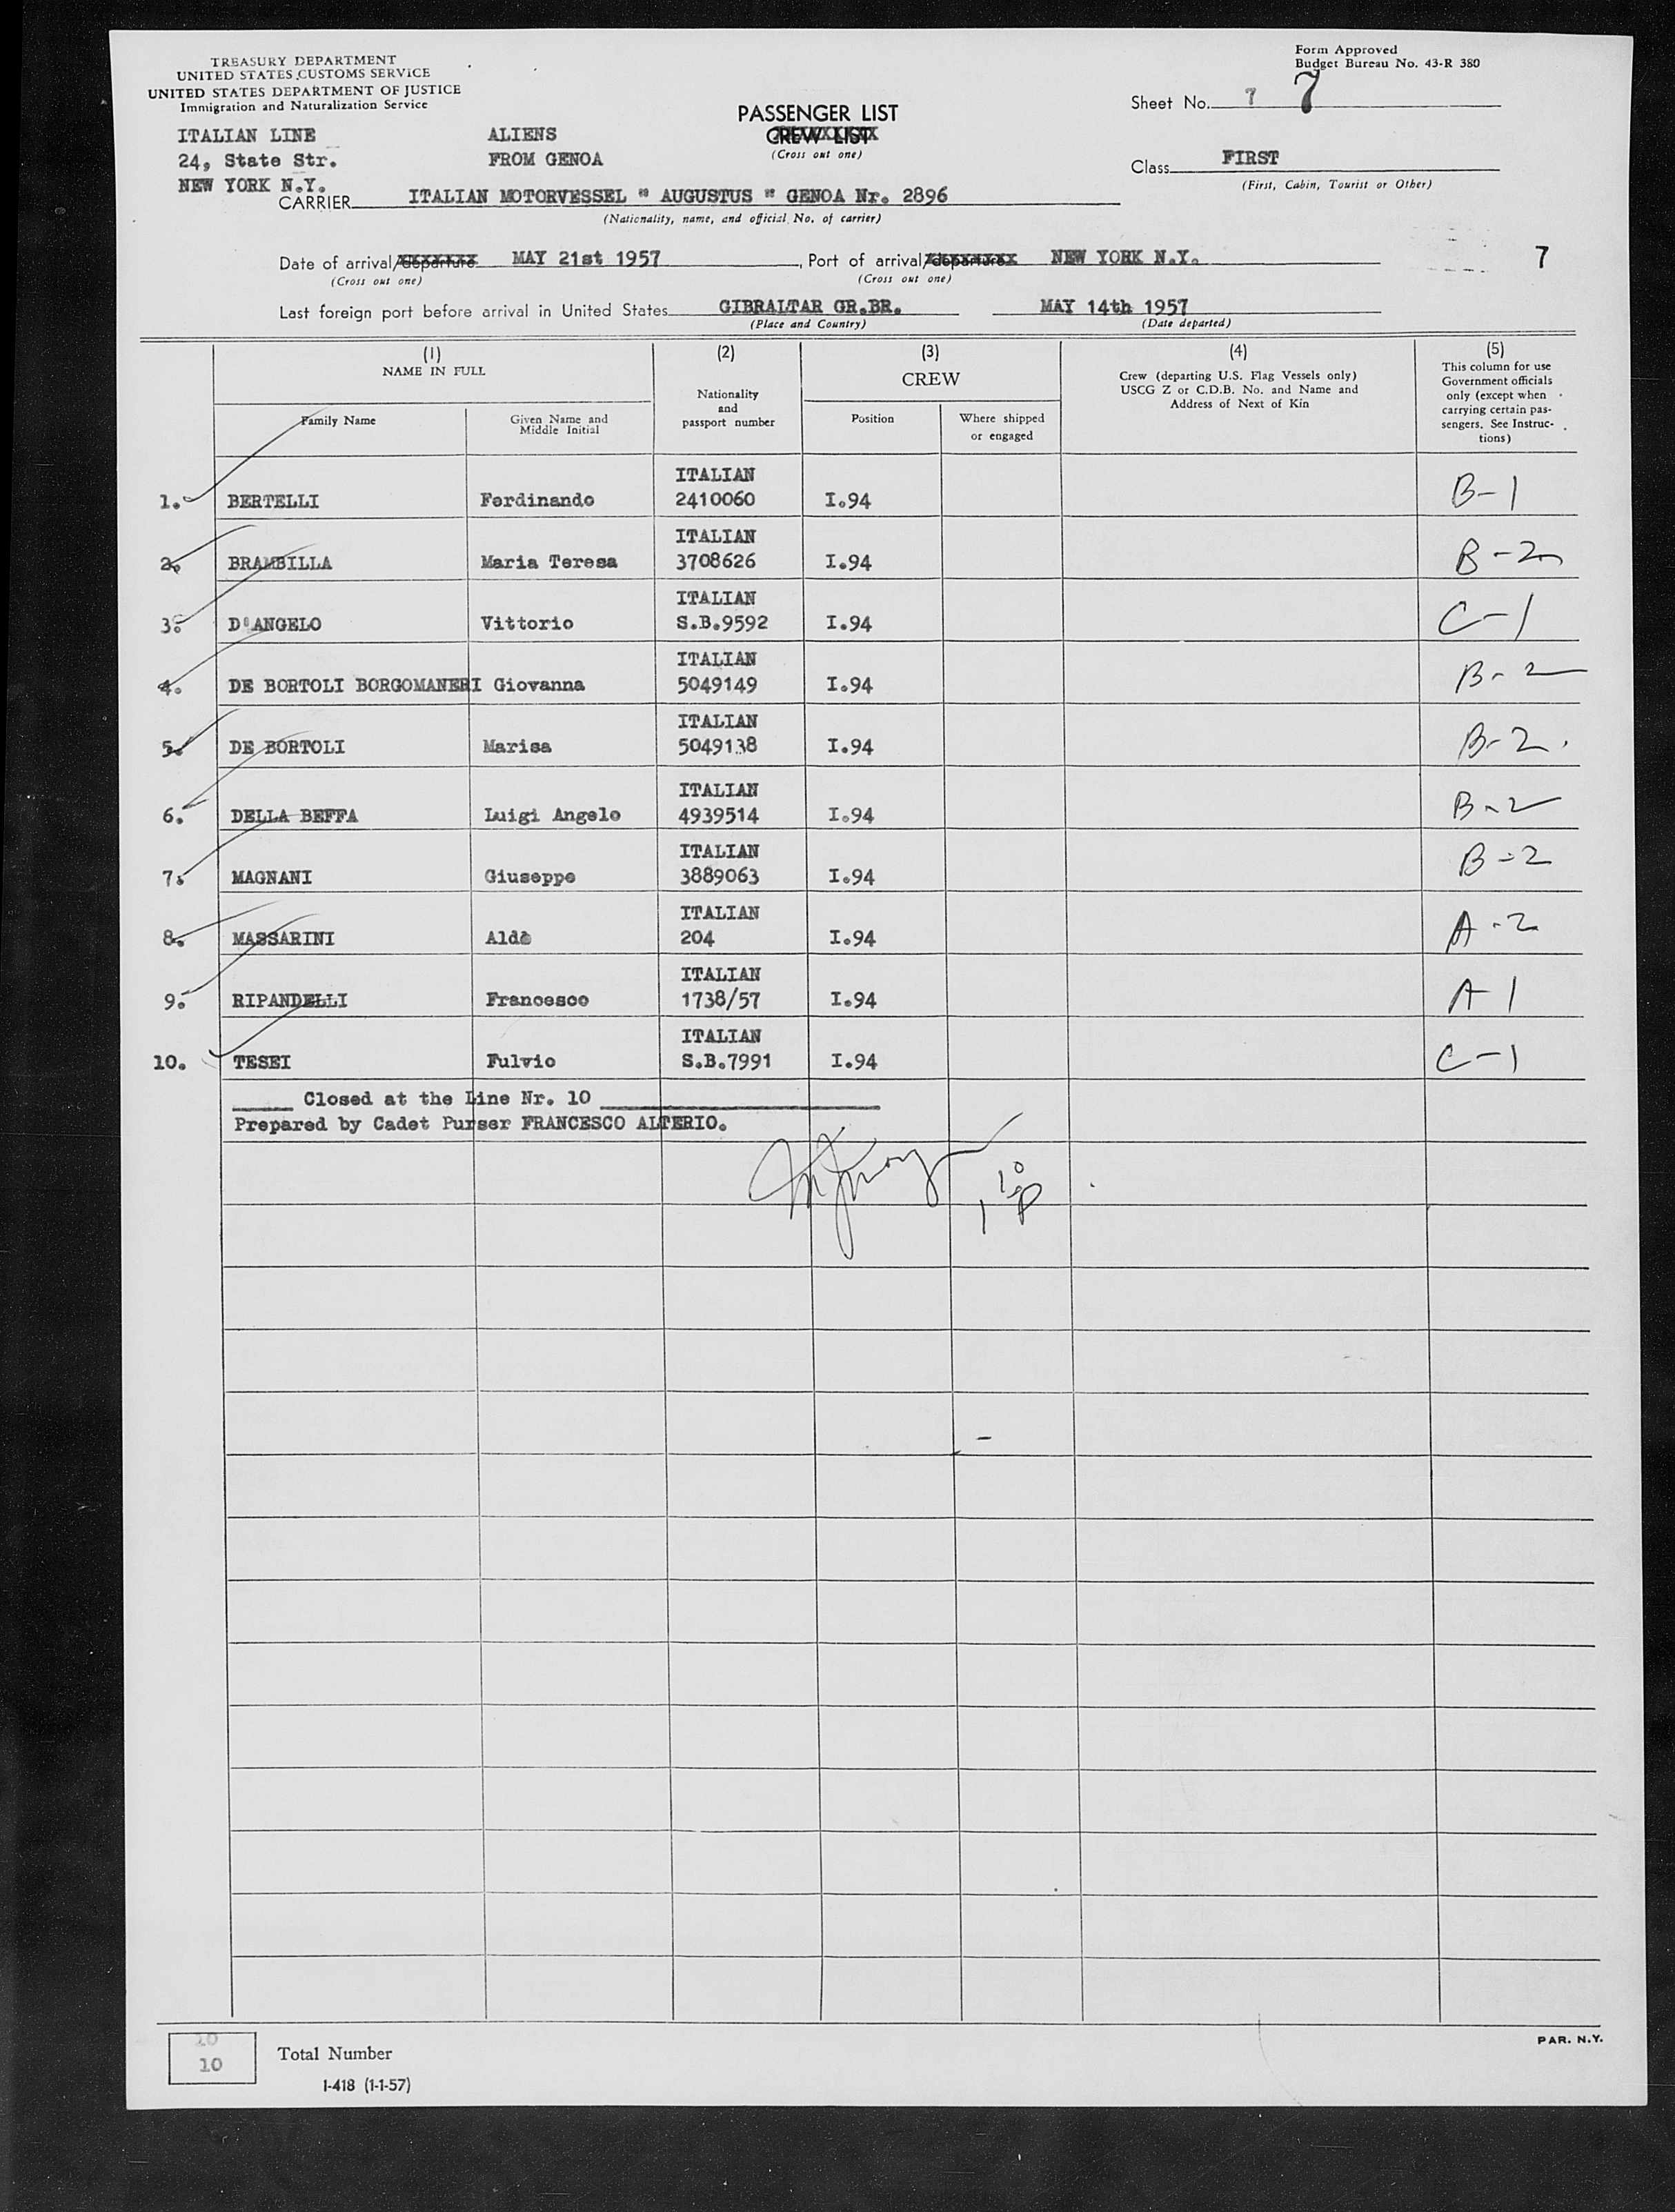 TREASURY DEPARTMENT
UNITED STATES CUSTOMS SERVICE
UNITED STATES DEPARTMENT OF JUSTICE
Immigration and Naturalization Service
Form Approved
Budget Bureau No. 43-R 380
Sheet No. 7 7
PASSENGER LIST
CREW LIST
(Cross out one)
ITALIAN LINE
24, State Str.
NEW YORK N.Y.
ALIENS
FROM GENOA
Class FIRST
(First, Cabin, Tourist or Other)
CARRIER ITALIAN MOTORVESSEL " AUGUSTUS " GENOA Nr. 2896
(Nationality, name, and official No. of carrier)
Date of arrival/departure MAY 21st 1957, Port of arrival/departure NEW YORK N.Y. 7
(Cross out one) (Cross out one)
Last foreign port before arrival in United States GIBRALTAR GR.BR. MAY 14th 1957
(Place and Country) (Date departed)
(1)
NAME IN FULL
Family Name
Given Name and
Middle Initial
(2)
Nationality
and
passport number
(3)
CREW
Position
Where shipped
or engaged
(4)
Crew (departing U.S. Flag Vessels only)
USCG Z or C.D.B. No. and Name and
Address of Next of Kin
(5)
This column for use
Government officials
only (except when
carrying certain pas-
sengers. See Instruc-
tions)
ITALIAN
1. BERTELLI Ferdinando 2410060 I.94 B-1
ITALIAN
2. BRAMBILLA Maria Teresa 3708626 I.94 B-2
ITALIAN
3. D'ANGELO Vittorio S.B.9592 I.94 C-1
ITALIAN
4. DE BORTOLI BORGOMANERI Giovanna 5049149 I.94 B-2
ITALIAN
5. DE BORTOLI Marisa 5049138 I.94 B-2.
ITALIAN
6. DELLA BEFFA Luigi Angelo 4939514 I.94 B-2
ITALIAN
7. MAGNANI Giuseppe 3889063 I.94 B-2
ITALIAN
8. MASSARINI Aldo 204 I.94 A-2
ITALIAN
9. RIPANDELLI Francesco 1738/57 I.94 A 1
ITALIAN
10. TESEI Fulvio S.B.7991 I.94 C-1
Closed at the Line Nr. 10
Prepared by Cadet Purser FRANCESCO ALTERIO.
10
10
Total Number
I-418 (1-1-57)
PAR. N.Y.